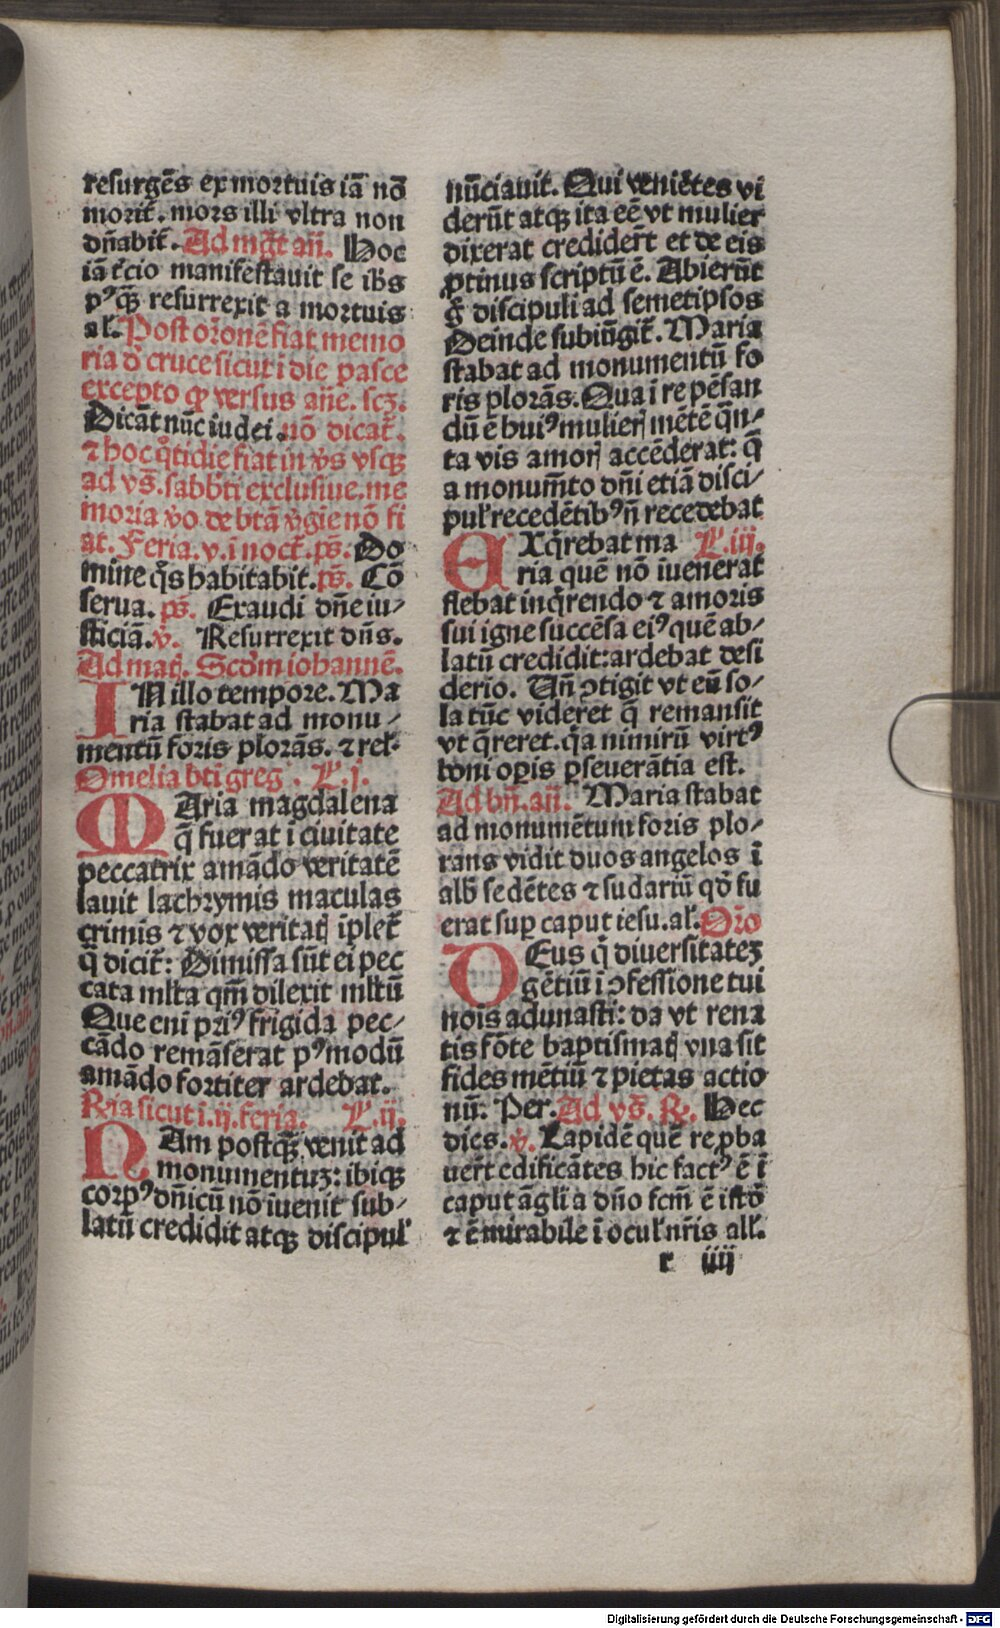 resurgēs ex mortuis iā nō
morit̄. mors illi vltra non
dn̄abit̄. Ad mḡt an̄. Hoc
iā t̄cio manifestauit se ih̄s
pꝰqꝫ̄ resurrexit a mortuis
al̄. Post or̄onē fiat memo
ria d̄ cruce sicut ī die pasce
excepto ꝙ versus an̄e. scꝫ.
Dicāt nūc iudei. nō dicat̄.
⁊ hoc q̊tidie fiat in v̄s vsqꝫ
ad vs̄. sabb̄ti exclusiue. me
moria v̊o de btā v̊gie nō fi
at. Feria. v. ī noct̄. ps̄. Do
mine q̊s habitabit. ps̄. Cō
serua. ps̄. Exaudi dn̄e iu⸗
sticiā. v̊. Resurrexit dn̄s.
Ad mat̄. Scd̄m iohannē.
IN illo tempore. Ma
ria stabat ad monu⸗
mentū foris plorās. ⁊ rel̄.
Omelia bt̄i greḡ. L. j.
MAria magdalena
q̄ fuerat ī ciuitate
peccatrix amādo veritatē
lauit lachrymis maculas
crimīs ⁊ vox veritatꝭ īplet̄
q̄ dicit̄: Dimissa sūt ei pec
cata ml̄ta qm̄ dilexit ml̄tū
Que eni priꝰ frigida pec⸗
cādo remāserat pꝰmodū
amādo fortiter ardebat.
Rr̄ia sicut ī. ij. feria. L. ij.
NAm postqꝫ̄ venit ad
monumentuꝫ: ibiqꝫ
corpꝰ dn̄icū nō īuenit sub⸗
latū credidit atqꝫ discipul̄
nūciauit. Qui veniētes vi
derūt atqꝫ ita eē vt mulier
dixerat credider̄t et de eis
ꝓtinus scriptū ē. Abierūt
g̊ discipuli ad semetipsos
Deinde subiūgit̄. Maria
stabat ad monumentū fo
ris plorās. Qua ī re pēsan
dū ē huiꝰ mulierꝭ mētē q̄n⸗
ta vis amorꝭ accēderat: q̄
a monum̄to dn̄i etiā disci⸗
pul̄ recedētibꝰ n̄ recedebat
EXq̄rebat ma L. iij.
ria quē nō īuenerat
flebat inq̄rendo ⁊ amoris
sui igne succēsa eiꝰ quē ab⸗
latū credidit: ardebat desi
derio. Un̄ ꝯtigit vt eū so⸗
la tūc videret q̄ remansit
vt q̄reret. q̄a nimirū virtꝰ
boni oꝑis ꝑseuerātia est.
Ad bn̄. an̄. Maria stabat
ad monumētum foris plo⸗
rans vidit duos angelos ī
alb̄ sedētes ⁊ sudariū qd̄ fu
erat suꝑ caput iesu. al̄. Or̄o
DEus q̄ diuersitateꝫ
gētiū ī ꝯfessione tui
nois adunasti: da vt rena
tis fōte baptismatꝭ vna sit
fides mētiū ⁊ pietas actio
nū. Per. Ad vs̄. R̄. Hec
dies. v̊. Lapidē quē reꝓba
uer̄t edificātes hic factꝰ ē ī
caput āgli a dn̄o fcm̄ ē istd̄
⁊ ē mirabile ī ocul̄ nr̄is all̄.
r iiij
Digitalisierung gefördert durch die Deutsche Forschungsgemeinschaft - DFG